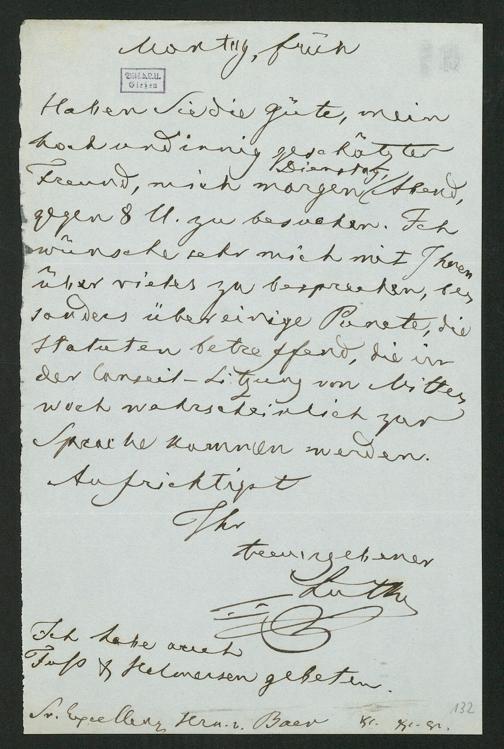 Montag, früh
Bibl. d. J. L. U.
Giessen
Haben Sie die Güte, mein
hoch und innig geschätzter
Freund, mich morgen, Dienstag, Abend,
gegen 8 U. zu besuchen. Ich
wünsche sehr mich mit Ihnen
über vieles zu besprechen, be-
sonders über einige Puncte, die
Statuten betreffend, die in
der Conseil-Sitzung von Mitt-
woch wahrscheinlich zur
Sprache kommen werden.
Aufrichtigst
Ihr
treuergebener
Lütke
Ich habe auch
Fuß & Helmersen gebeten.
Sr. Excellenz Hrn. v. Baer
132